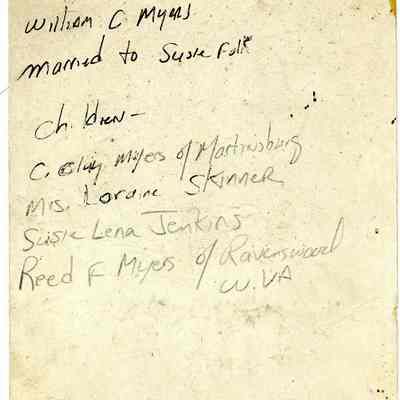 William C Myers
Married to Susie Folk
Children-
C. Clay Myers of Martinsburg
Mrs. Loraine Skinner
Susie Lena Jenkins
Reed F Myers of Ravenswood
W.VA